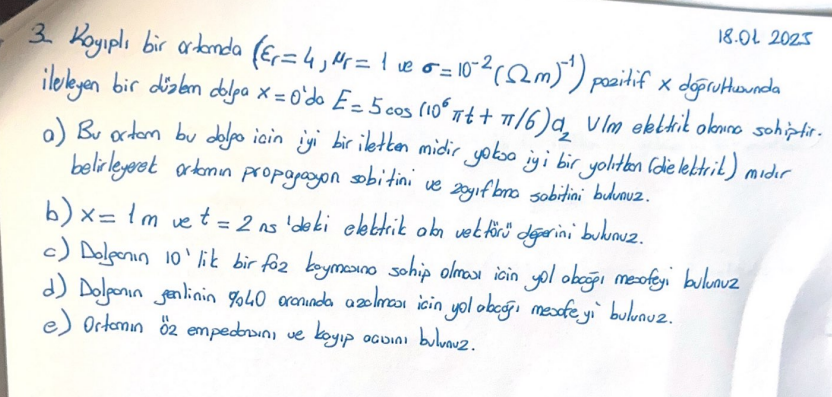 18.01.2025
3. Kayıplı bir ortamda (εr = 4, μr = 1 ve σ = 10⁻² (Ωm)⁻¹) pozitif x doğrultusunda
ilerleyen bir düzlem dalga x = 0'da E = 5 cos (10⁶ πt + π/6) a_z V/m elektrik alanına sahiptir.
a) Bu ortam bu dalga için iyi bir iletken midir yoksa iyi bir yalıtkan (dielektrik) mıdır
belirleyerek ortamın propagasyon sabitini ve zayıflama sabitini bulunuz.
b) x = 1 m ve t = 2 ns 'deki elektrik alan vektörü değerini bulunuz.
c) Dalganın 10° lik bir faz kaymasına sahip olması için yol alacağı mesafeyi bulunuz
d) Dalganın genliğinin %40 oranında azalması için yol alacağı mesafeyi bulunuz.
e) Ortamın öz empedansını ve kayıp açısını bulunuz.